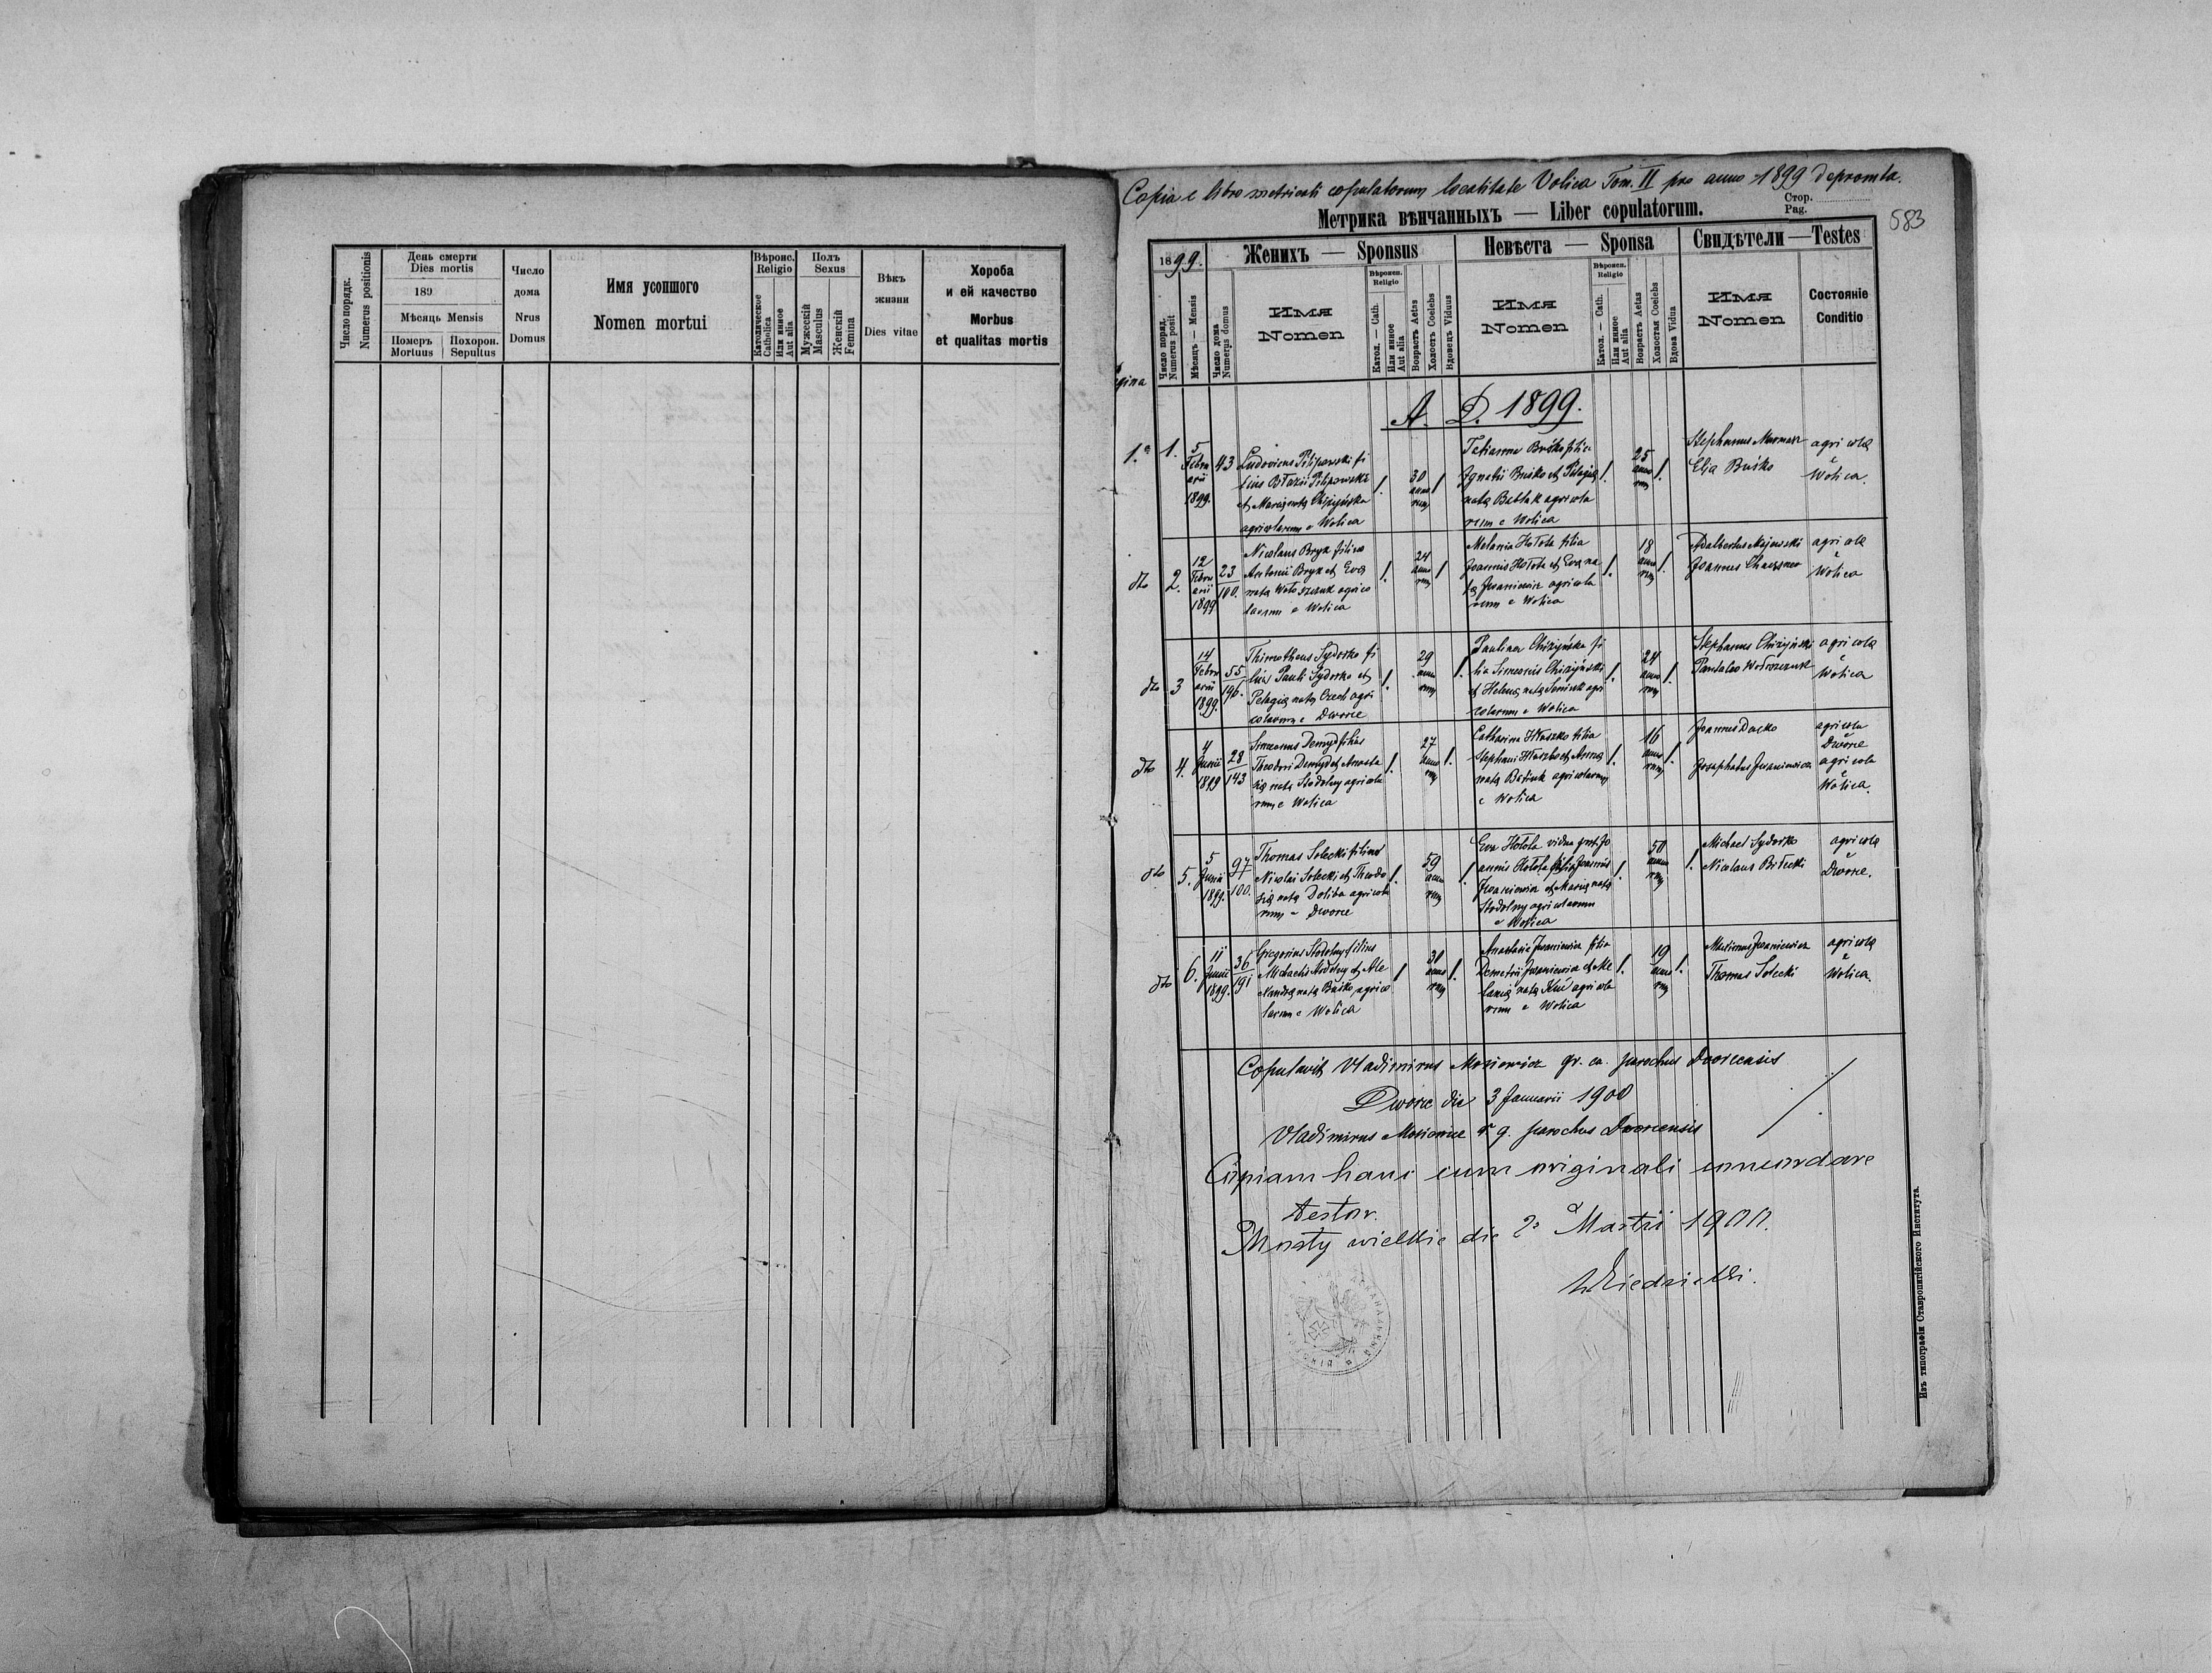 Число порядк.
Numerus positionis
День смерти
Dies mortis
189
Мѣсяць Mensis
Померъ
Mortuus
Похорон.
Sepultus
Число
дома
Nrus
Domus
Имя усопшого
Nomen mortui
Вѣроис.
Religio
Католическое
Catholica
Или инное
Aut alia
Полъ
Sexus
Мужескій
Masculus
Женскій
Femina
Вѣкъ
жизни
Dies vitae
Хороба
и ей качество
Morbus
et qualitas mortis
Copia e libro metricali copulatorum localitate Volica Tom. II pro anno 1899 depromta.
Метрика вѣнчанныхъ — Liber copulatorum.
Стор.
Pag.
583
1899.
Женихъ — Sponsus
Невѣста — Sponsa
Свидѣтели — Testes
Число поряд.
Numerus posit
Мѣсяць — Mensis
Число дома
Numerus domus
Имя
Nomen
Вѣроисп.
Religio
Катол. — Cath.
Или инное
Aut alia
Возрастъ Aetas
Холостъ Coelebs
Вдовецъ Viduus
Имя
Nomen
Вѣроисп.
Religio
Катол. — Cath.
Или инное
Aut alia
Возрастъ Aetas
Холостая Coelebs
Вдова Vidua
Имя
Nomen
Состояніе
Conditio
A. D. 1899.
1. 5 Febru arii 1899. 43
Ludovicus Pilipowski fi
lius Błazii Pilipowski
agricolarum e Wolica
30 anno rum
Tatianna Buśko filia
Ignatii Buśko et Pelagia
nata agricola
rum e Wolica
25 anno rum
Stephanus
Elia Buśko
agricola
e
Wolica.
dto 2. 12 Febru arii 1899 23 100.
Nicolaus Bryk filius
Antonii Bryk et Eva
nata Wołoszczuk agrico
larum e Wolica
24 anno rum
Melania Hołota filia
Joannis Hołota et Eva na
ta Iwaniewicz agricola
rum e Wolica
18 anno rum
Adalbertus Majewski
Joannes
agricola
e
Wolica
dto 3 14 Febru arii 1899. 55 146.
Thimotheus Sydorko fi
lius Pauli Sydorko et
Pelagia nata agri
colarum e Dworce
29 anno rum
Paulina Chiżyńska fi
lia Simeonis Chiżyński
et Helena nata agri
colarum e Wolica
24 anno rum
Stephanus Chiżyński
Pantaleo Wołoszczuk
agricola
e
Wolica
dto 4. 4 Junii 1899 28 143
Simeonus Demyd filius
Theodori Demyd et Anasta
sia nata Stodolny agricola
rum e Wolica
27 anno rum
Catharina Hłuszko filia
Stephani Hłuszko et Anna
nata agricolarum
e Wolica
16 anno rum
Joannes Dacko
Josaphatus Iwaniewicz
agricola
Dworce
agricola
e
Wolica.
dto 5. 5 Junii 1899. 97 100.
Thomas Solecki filius
Nicolai Solecki et Theodo
sia nata Doliba agricola
rum e Dworce
59 anno rum
Eva Hołota vidua post Jo
annis Hołota filia Joannis
Iwaniewicz et Maria nata
Stodolny agricolarum
e Wolica
50 anno rum
Michael Sydorko
Nicolaus Biłecki
agricola
e
Dworce.
dto 6. 11 Junii 1899. 36 191
Gregorius Stodolny filius
Michaelis Stodolny et Ale
xandra nata Buśko agrico
larum e Wolica
30 anno rum
Anastasia Iwaniewicz filia
Demetrii Iwaniewicz et Me
lania nata agricola
rum e Wolica
19 anno rum
Maximus Iwaniewicz
Thomas Solecki
agricola
e
Wolica.
Copulavit Vladimirus Mosiewicz gr. ca. parochus Dvorcensis
Dworce die 3 Januarii 1900
Vladimirus Mosiewicz r. g. parochus Dvorcensis
Copiam hanc cum originali concordare
testor.
Mosty wielkie die 2 Martii 1900.
Изъ типографіи Ставропигійского Института.